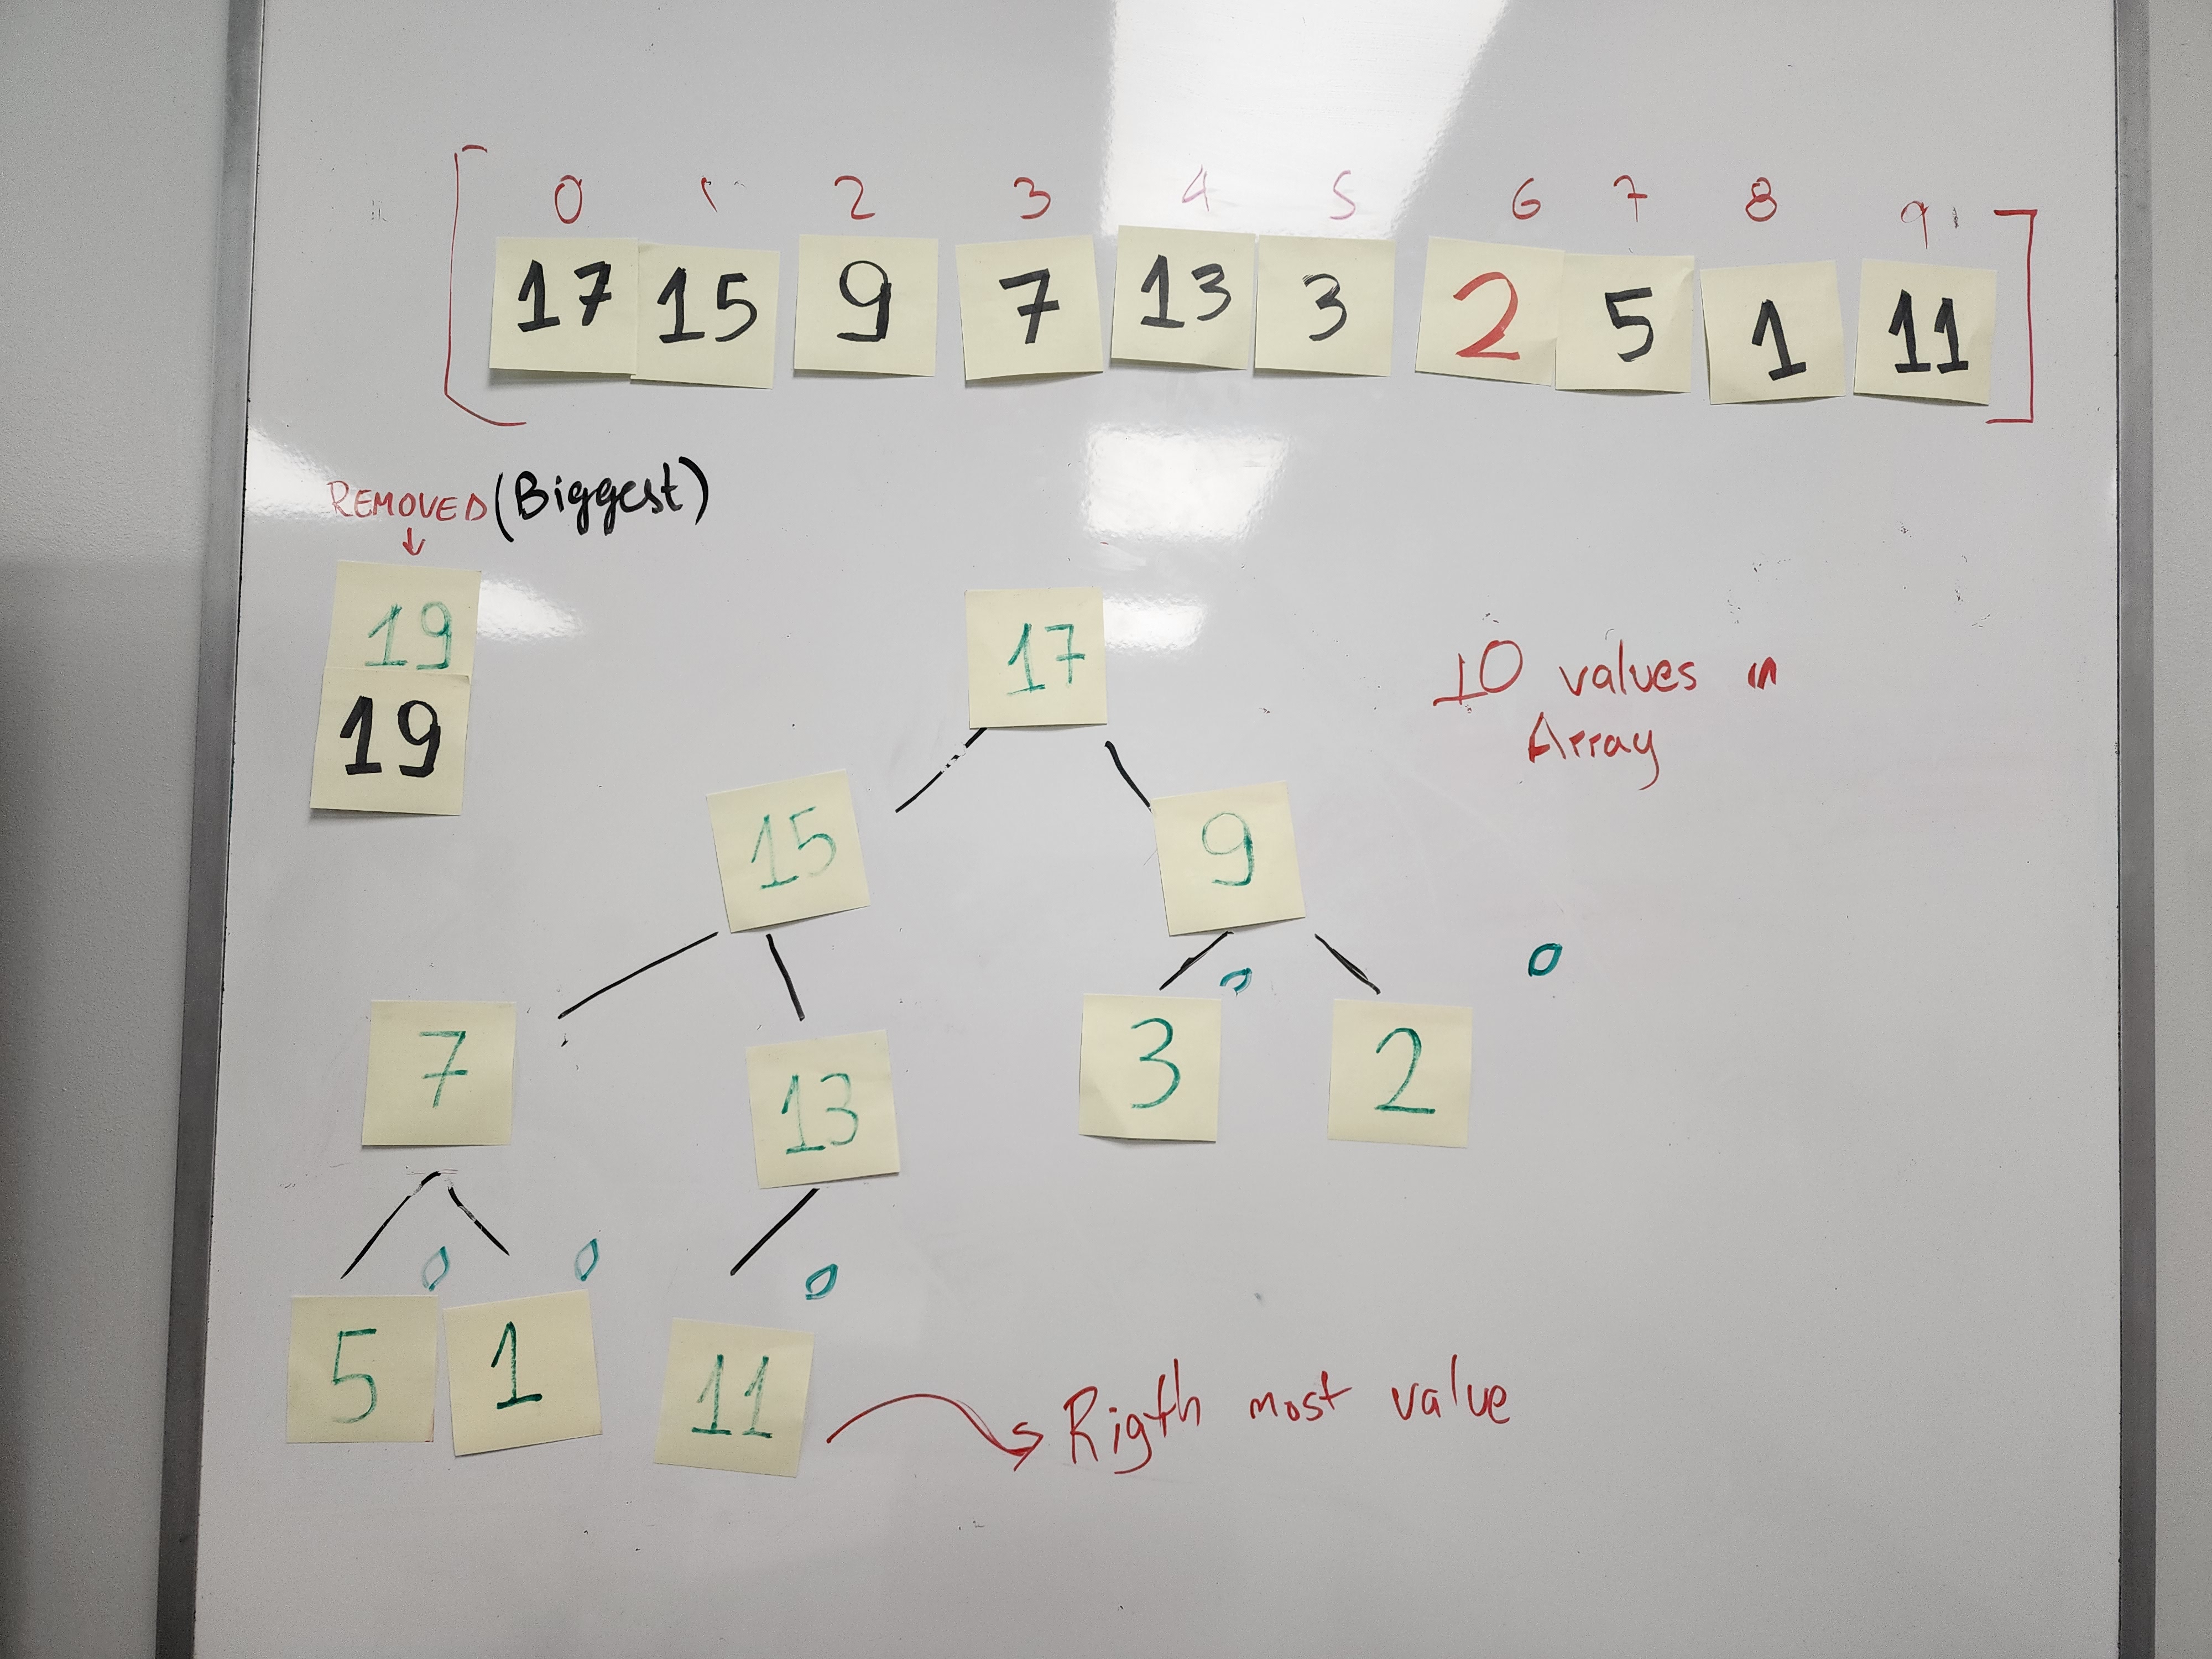 0 1 2 3 4 5 6 7 8 9
17 15 9 7 13 3 2 5 1 11
REMOVED (Biggest)
19
19
17
10 values in
Array
15 9
0
0
7 13 3 2
0 0 0
5 1 11
Rigth most value